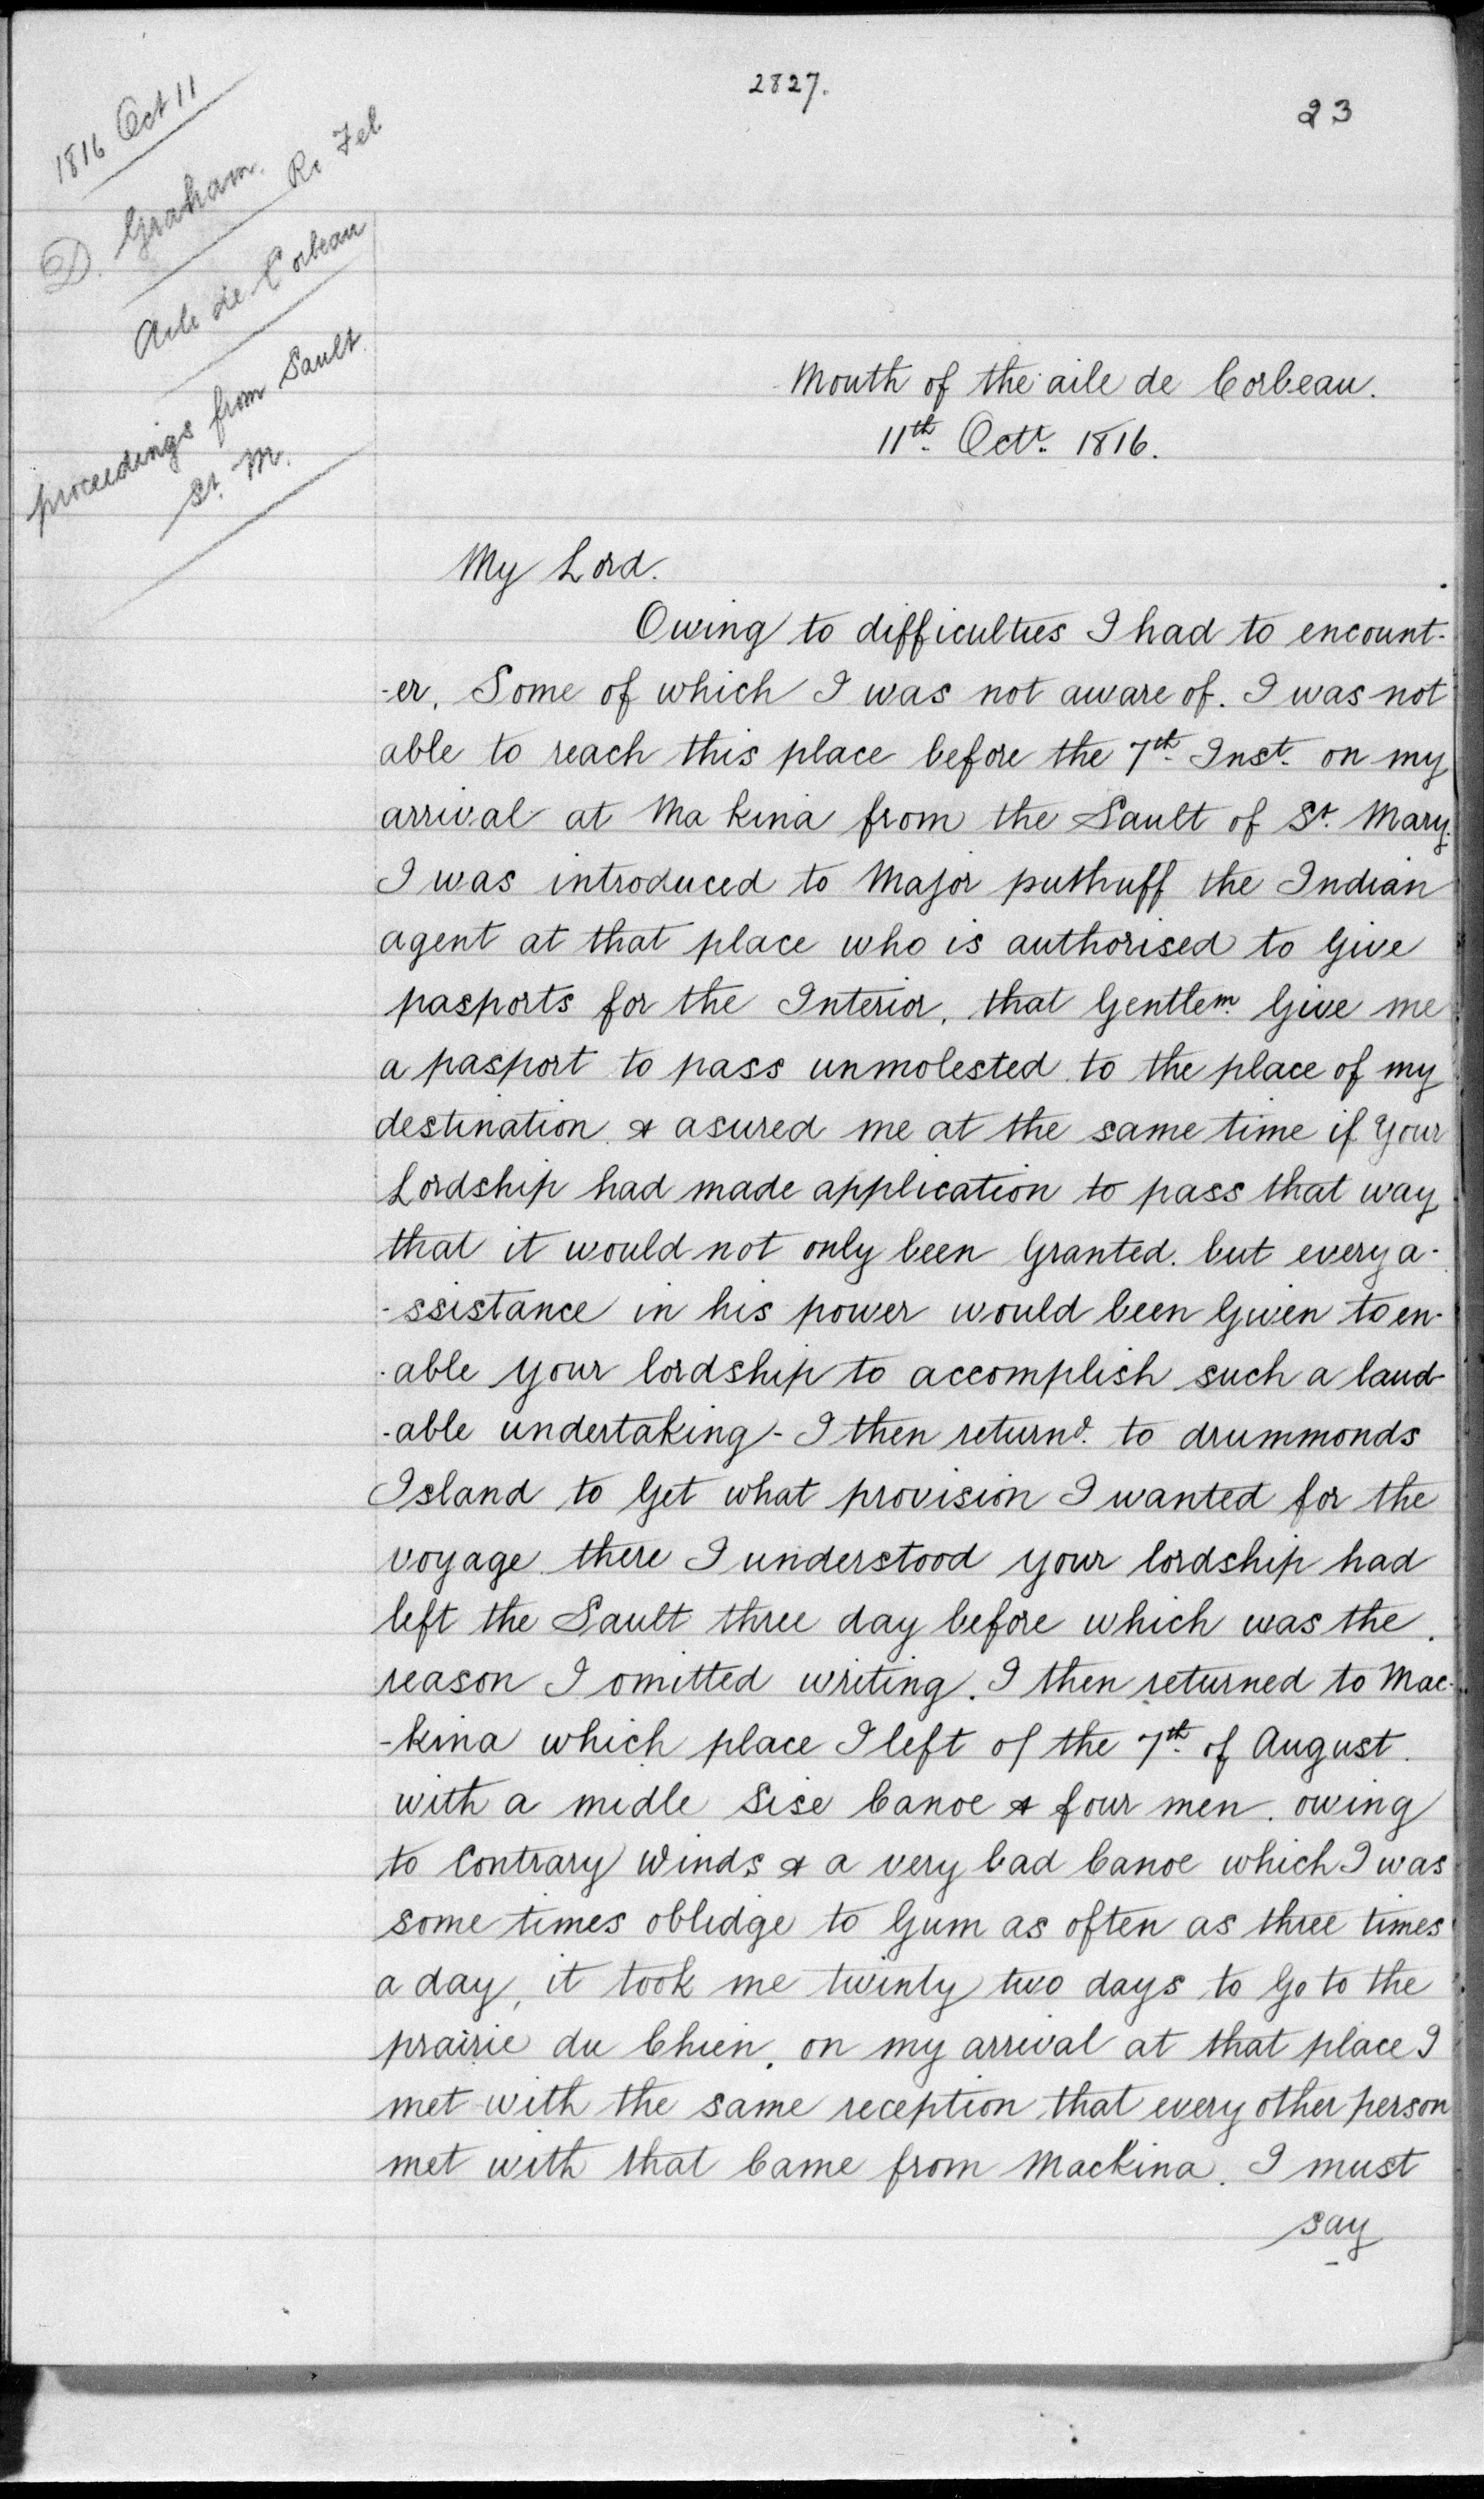 2827.
23
1816 Oct 11
D. Graham.
Rc Feb
Aile de Corbeau
proceedings from Sault
St. M.
Mouth of the aile de Corbeau.
11th Octr. 1816.
My Lord.
Owing to difficulties I had to encount-
-er, Some of which I was not aware of. I was not
able to reach this place before the 7th Inst. on my
arrival at Ma kina from the Sault of St. Mary.
I was introduced to Major puthuff the Indian
agent at that place who is authorised to Give
pasports for the Interior, that Gentlem. Give me
a pasport to pass unmolested to the place of my
destination & asured me at the same time if your
Lordship had made application to pass that way
that it would not only been Granted. but every a-
-ssistance in his power would been Given to en-
-able your lordship to accomplish such a laud-
-able undertaking - I then returnd. to drummonds
Island to Get what provision I wanted for the
voyage there I understood your lordship had
left the Sault three day before which was the
reason I omitted writing. I then returned to Mac-
-kina which place I left of the 7th of August.
with a midle Sise Canoe & four men. owing
to Contrary Winds & a very bad Canoe which I was
some times oblidge to Gum as often as three times
a day, it took me twinty two days to Go to the
prairie du Chien, on my arrival at that place I
met with the same reception that every other person
met with that Came from Mackina. I must
say